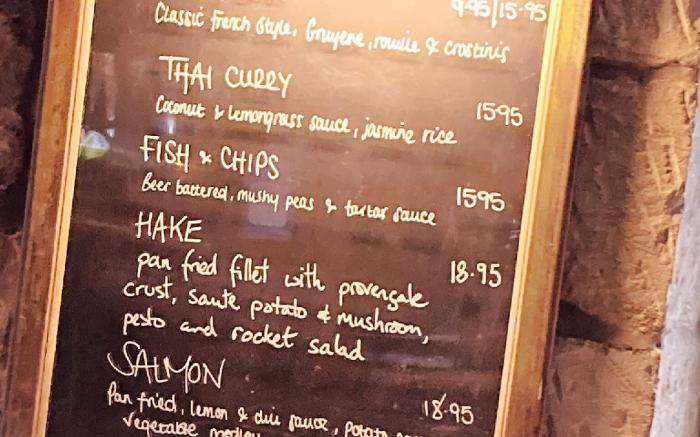 9.95/15.95
Classic French Style, Gruyene, rouille & crostinis
THAI CURRY
Coconut & lemongrass sauce, jasmine rice 1595
FISH & CHIPS
Beer battered, mushy peas & tartar sauce 1595
HAKE
pan fried fillet with provençale 18.95
crust, sauté potato & mushroom,
pesto and rocket salad
SALMON
Pan fried, lemon & dill sauce, potato 18.95
vegetable medley